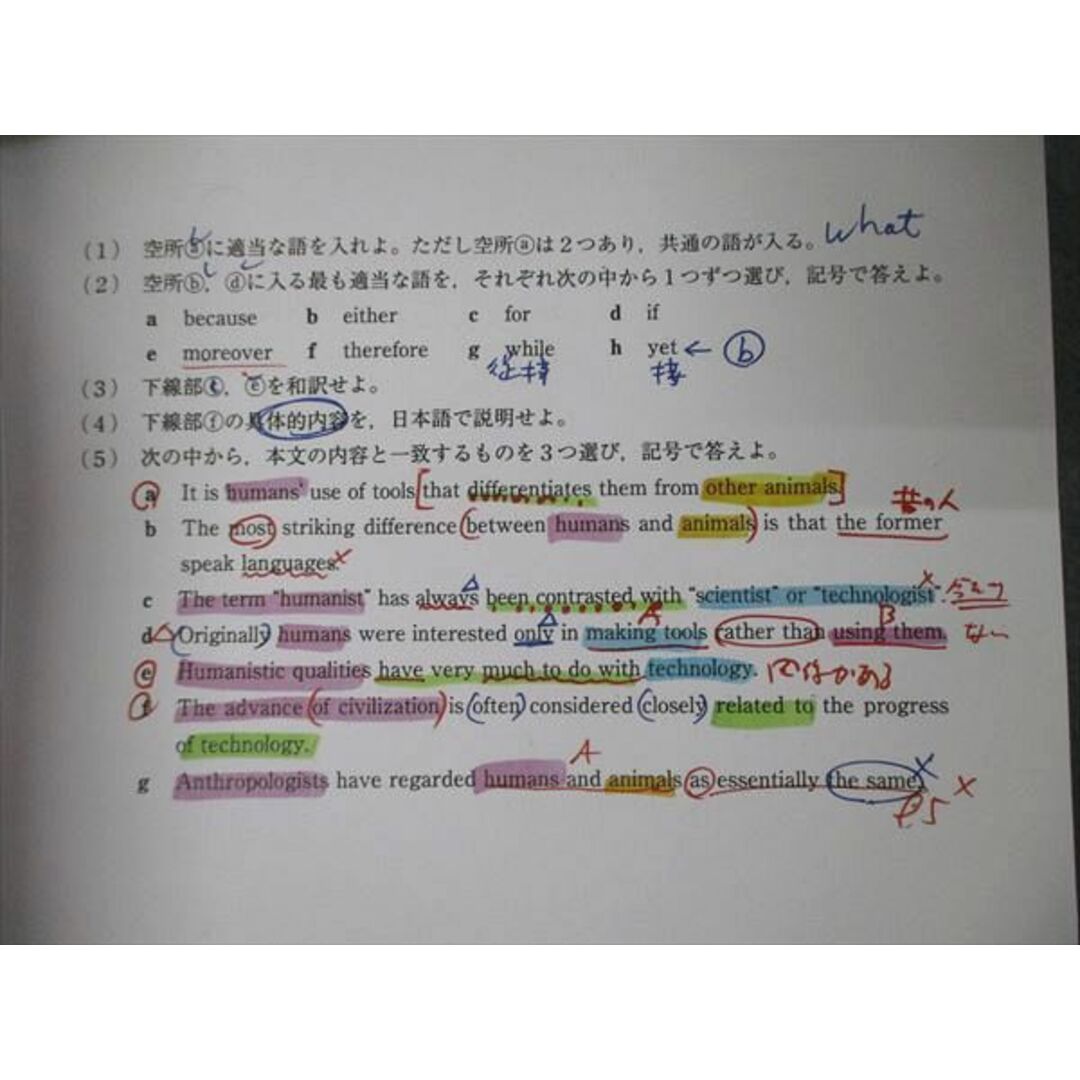 (1) 空所ⓐに適当な語を入れよ。ただし空所ⓐは2つあり，共通の語が入る。 what
(2) 空所ⓑ，ⓓに入る最も適当な語を，それぞれ次の中から1つずつ選び，記号で答えよ。
a because b either c for d if
e moreover f therefore g while h yet ← ⓑ
(3) 下線部ⓒ，ⓔを和訳せよ。
(4) 下線部ⓕの具体的内容を，日本語で説明せよ。
(5) 次の中から，本文の内容と一致するものを3つ選び，記号で答えよ。
a It is humans' use of tools [that differentiates them from other animals.]
昔の人
b The most striking difference (between humans and animals) is that the former
speak languages. ×
c The term "humanist" has always been contrasted with "scientist" or "technologist". ×
d Originally humans were interested only in making tools rather than using them. ない
A B
e Humanistic qualities have very much to do with technology. 関係がある
f The advance (of civilization) is (often) considered (closely) related to the progress
of technology.
A
g Anthropologists have regarded humans and animals as essentially the same. × ×